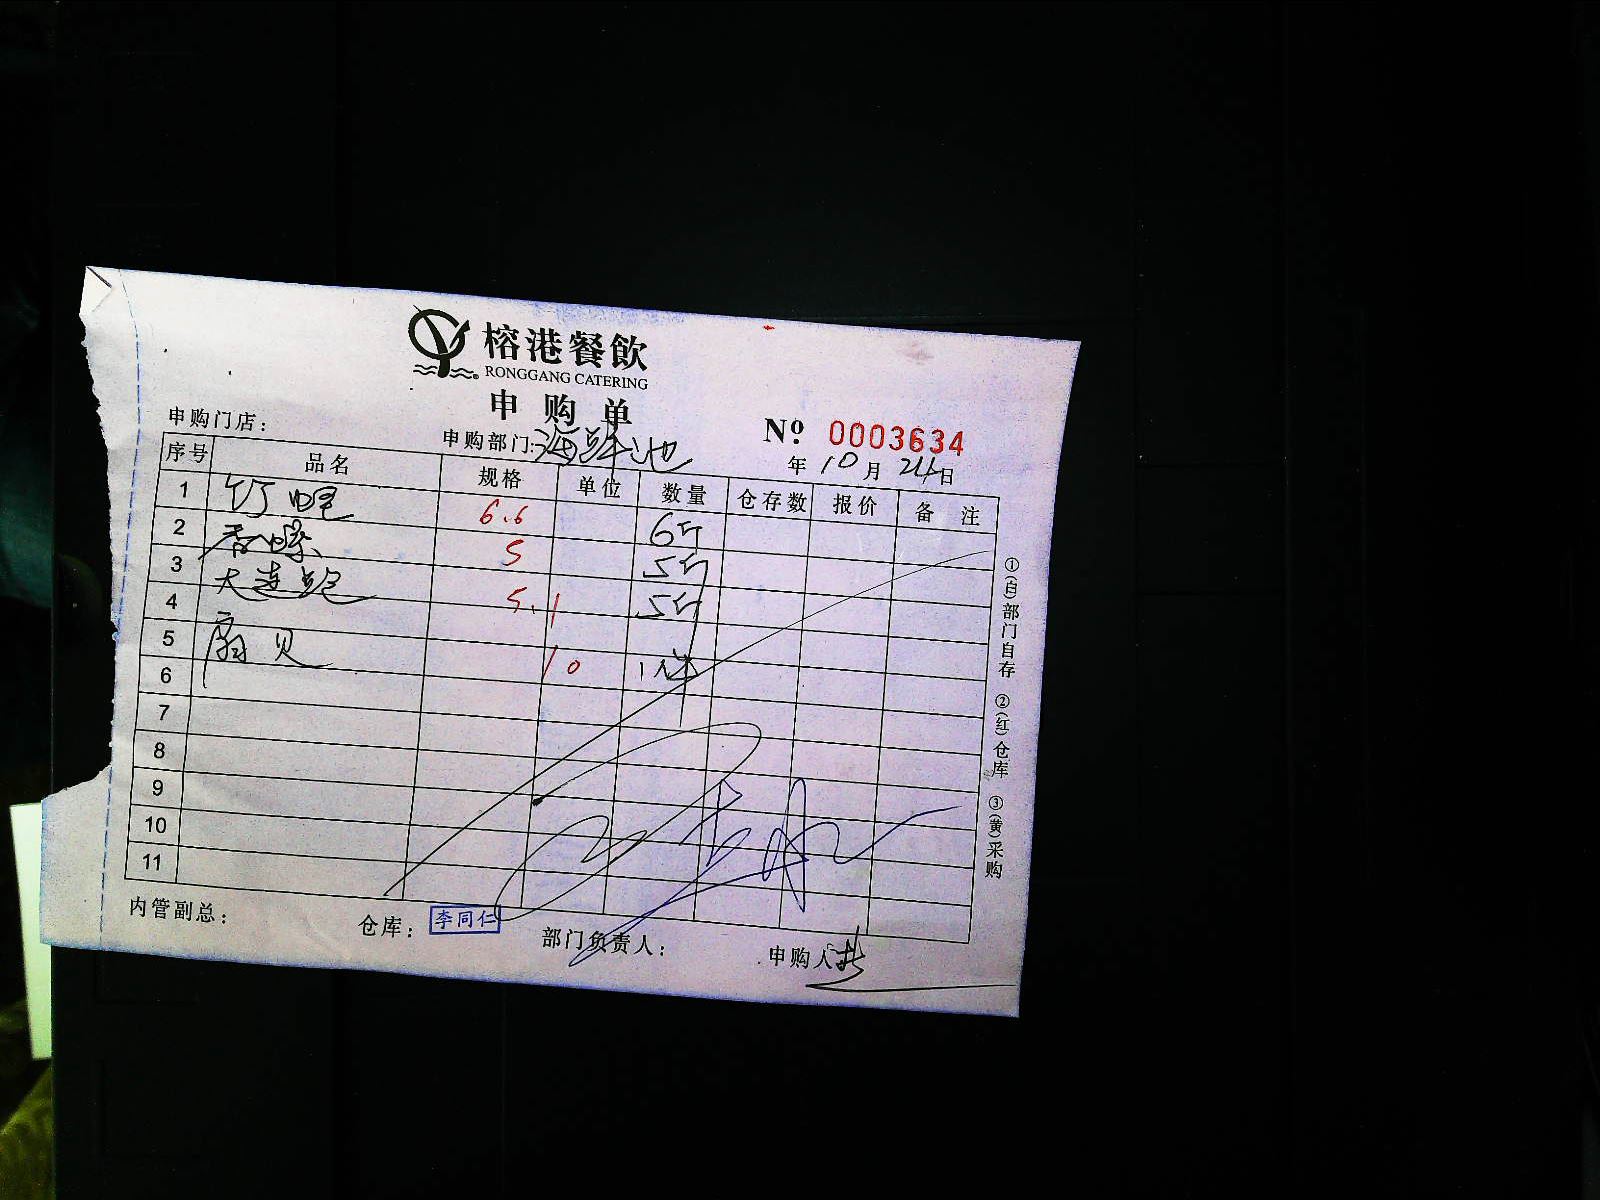 榕港餐飲
RONGGANG CATERING
申购单
申购门店：
申购部门：海鲜池
Nº 0003634
年 10 月 24 日
序号 品名 规格 单位 数量 仓存数 报价 备注
1 竹蛏 6.6 6斤
2 香螺 5 5斤
3 大连鲍 5.1 5斤
4
5 扇贝 10
6
7
8
9
10
11
①(白)部门自存 ②(红)仓库 ③(黄)采购
内管副总： 仓库：李同仁 部门负责人： 申购人